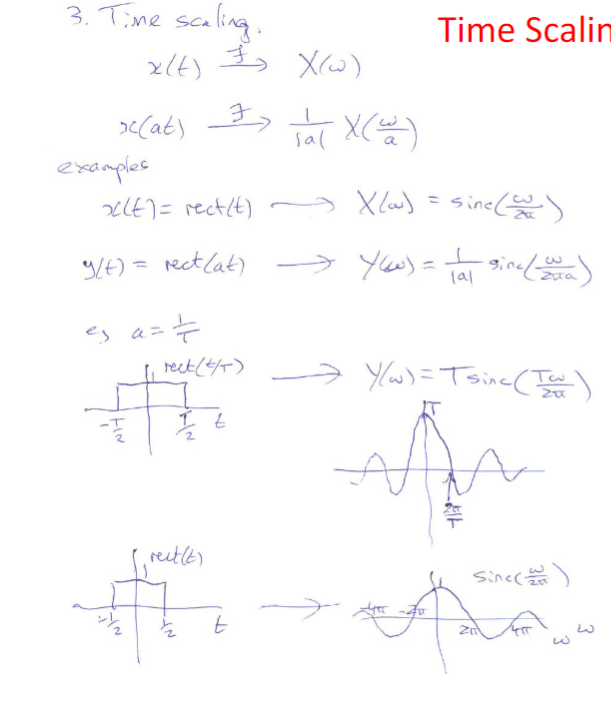 3. Time scaling.
Time Scalin
x(t) ℱ→ X(ω)
x(at) ℱ→ 1/|a| X(ω/a)
examples
x(t) = rect(t) → X(ω) = sinc(ω/2π)
y(t) = rect(at) → Y(ω) = 1/|a| sinc(ω/2πa)
eg a = 1/T
1 rect(t/T) → Y(ω) = T sinc(Tω/2π)
T
-T/2 T/2 t
2π/T
1 rect(t) → 1 sinc(ω/2π)
-4π -2π 2π 4π ω ω
-1/2 1/2 t